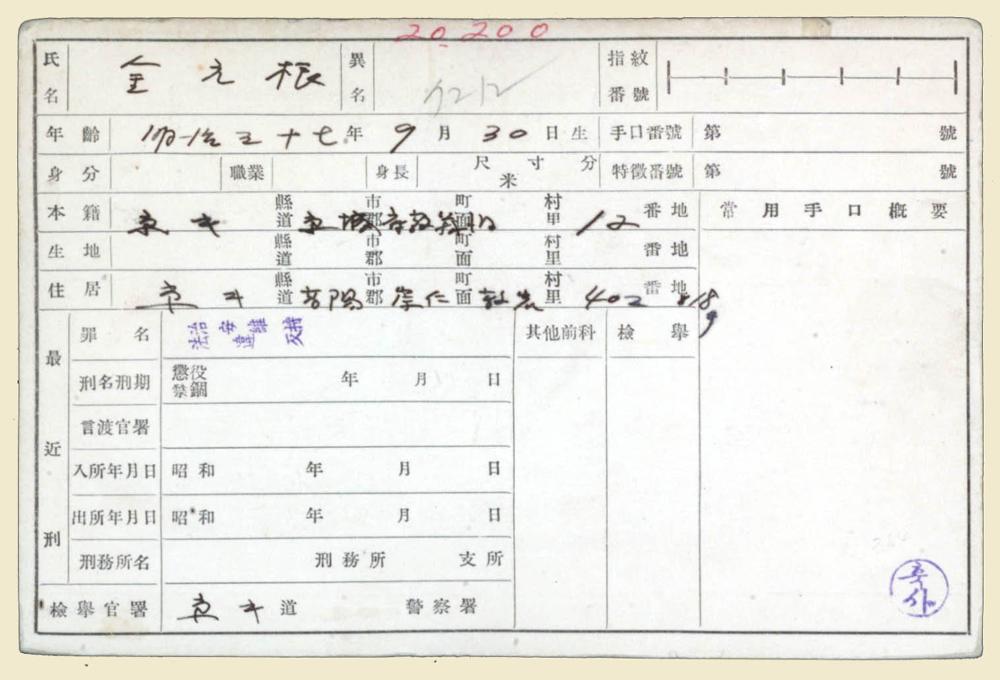 20,200
氏名 金元根 異名 指紋番號
年齡 明治三十七年9月30日生 手口番號 第 號
身分 職業 身長 尺寸分 米 特徵番號 第 號
本籍 京キ 縣道 京城 市郡 町面 村里 12 番地 常用手口概要
生地 縣道 市郡 町面 村里 番地
住居 京キ 縣道 高陽 市郡 崇仁 町面 村里 402 番地 18
最近刑 罪名 治安維持法違反 其他前科 檢擧
刑名刑期 懲役 禁錮 年 月 日
言渡官署
入所年月日 昭和 年 月 日
出所年月日 昭和 年 月 日
刑務所名 刑務所 支所
檢擧官署 京キ道 警察署
복사